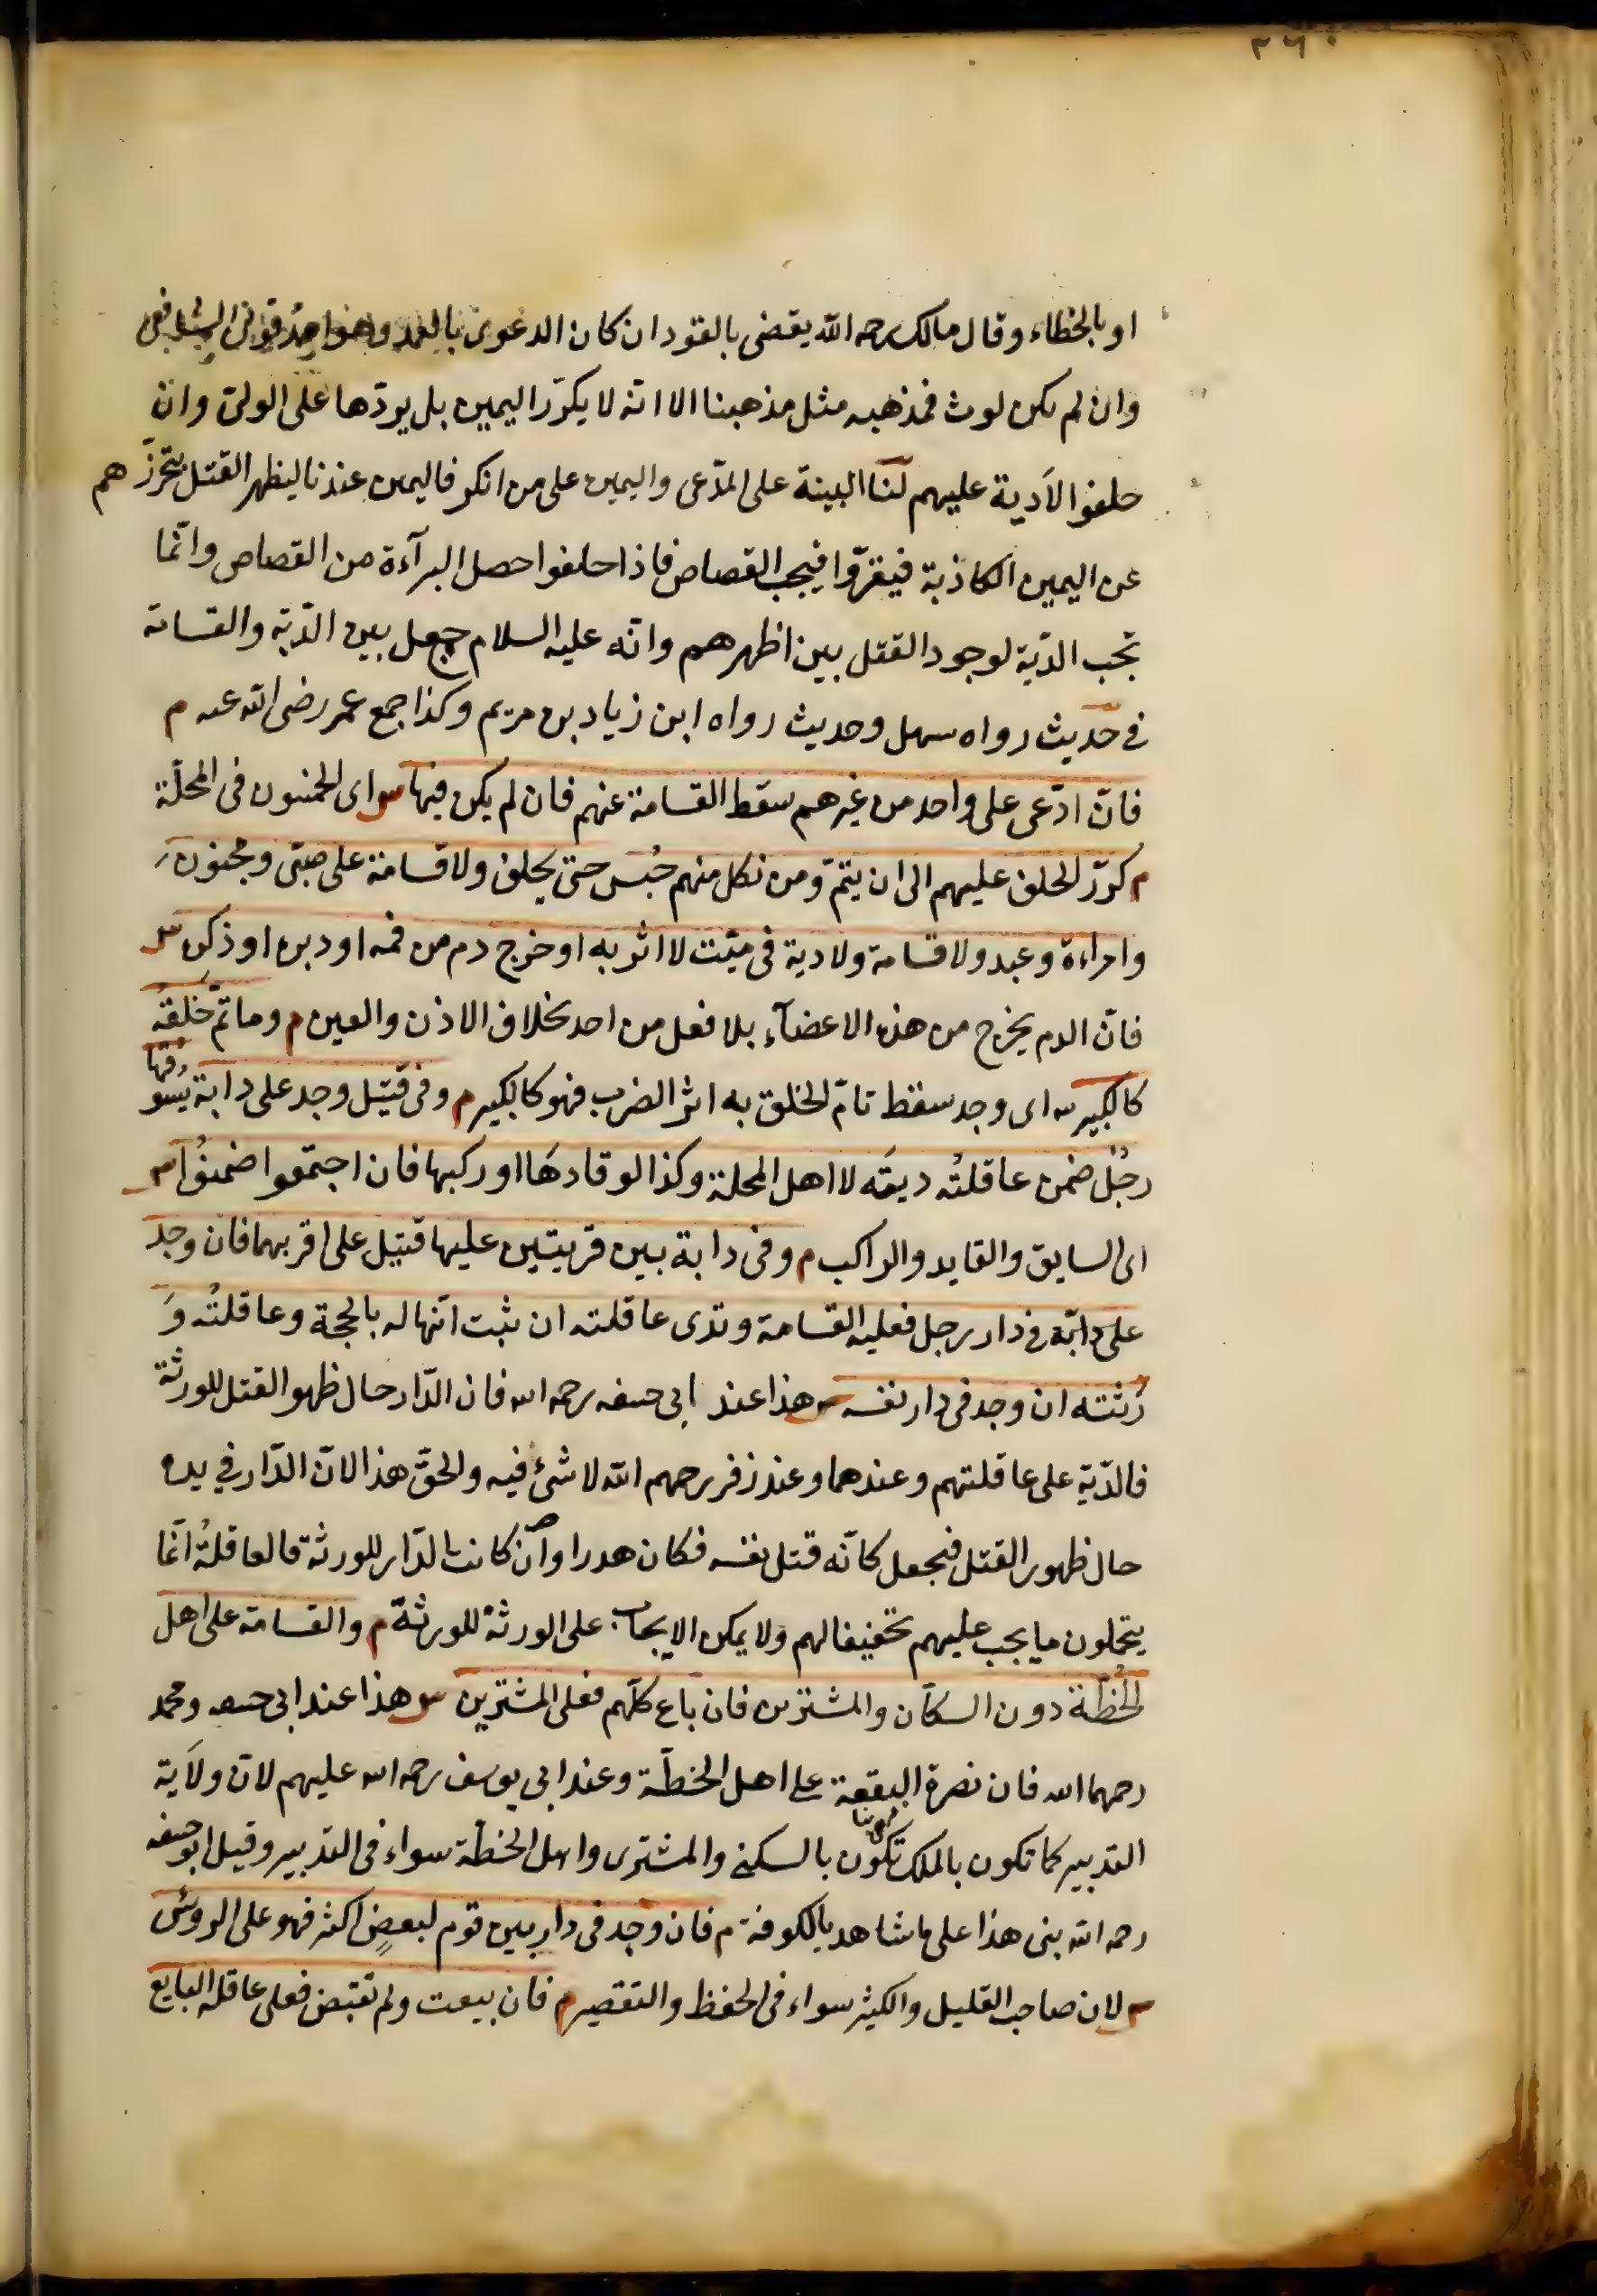 ٢٦٠
او بالخطاء وقال مالك رحمه الله يقضى بالقود ان كان الدعوى بالعمد وهو احد قولى الشافعى
وان لم يكن لوث فمذهبه مثل مذهبنا الا انه لا يكرّر اليمين بل يردّها على الولىّ وان
حلفوا لا دية عليهم لنا البينة على المدّعى واليمين على من انكر فاليمين عندنا ليظهر القتل بتحرزهم
عن اليمين الكاذبة فيقرّوا فيجب القصاص فاذا حلفوا حصل البرآءة من القصاص وانّما
تجب الدّية لوجود القتل بين اظهرهم وانّه عليه السلام جمع بين الدّية والقسامة
فى حديث رواه سهل وحديث رواه ابن زياد بن مريم وكذا جمع عمر رضى الله عنه م
فان ادّعى على واحد من غيرهم سقط القسامة عنهم فان لم يكن فيها س اى الخمسون فى المحلّة
م كرّر الحلف عليهم الى ان يتمّ ومن نكل منهم حُبس حتى يحلف ولا قسامة على صبىّ ومجنون
وامراءة وعبد ولا قسامة ولا دية فى ميّت لا اثر به او خرج دم من فمه او دبره او ذكره س
فانّ الدم يخرج من هذه الاعضآء بلا فعل من احد بخلاف الاذن والعين م وما تمّ خَلقُه
كالكبير س اى وجد سقط تامّ الخلق به اثر الضرب فهو كالكبير م وفى قتيل وجد على دابة يسُوقُها
رجُل ضمن عاقلتُه ديتَه لا اهل المحلة وكذا لو قادهَا او ركبها فان اجتمعوا ضمنوُا س
اى السايق والقايد والراكب م وفى دابة بين قريتين عليها قتيل على اقربهما فان وجد
على دابّة فى دار رجل فعليه القسامة وتدى عاقلته ان ثبت انّها له بالحجة وعاقلتُه وَ
رَثته ان وجد فى دار نفسه س هذا عند ابى حنيفه رحمه الله فان الدّار حال ظهو القتل للورثة
فالدّية على عاقلتهم وعندهما وعند زفر رحمهم الله لا شئ فيه والحقّ هذا لانّ الدّار فى يده
حال ظهور القتل فيجعل كانّه قتل نفسه فكان هدرا وان كانت الدّار للورثة فالعاقلةُ انّما
يتحملون ما يجب عليهم تخفيفا لهم ولا يمكن الايجاب على الورثة للورثة م والقسامة على اهل
الخُطّة دون السكّان والمشترين فان باع كلّهم فعلى المشترين س هذا عند ابى حنيفه ومحمد
رحمهما الله فان نصرة البقعة على اهل الخطّة وعند ابى يوسف رحمه الله عليهم لانّ ولايَة
التدبير كما تكون بالملك تكون بالسكنى والمشترى واهل الخطّة سواء فى التدبير وقيل ابو حنيفه
رحمه الله بنى هذا على ما شاهد بالكوفة م فان وجد فى دار بين قوم لبعضٍ اكثر فهو على الروُس
س لان صاحب القليل والكثير سواء فى الحفظ والتقصير م فان بيعت ولم تقبض فعلى عاقلة البايع